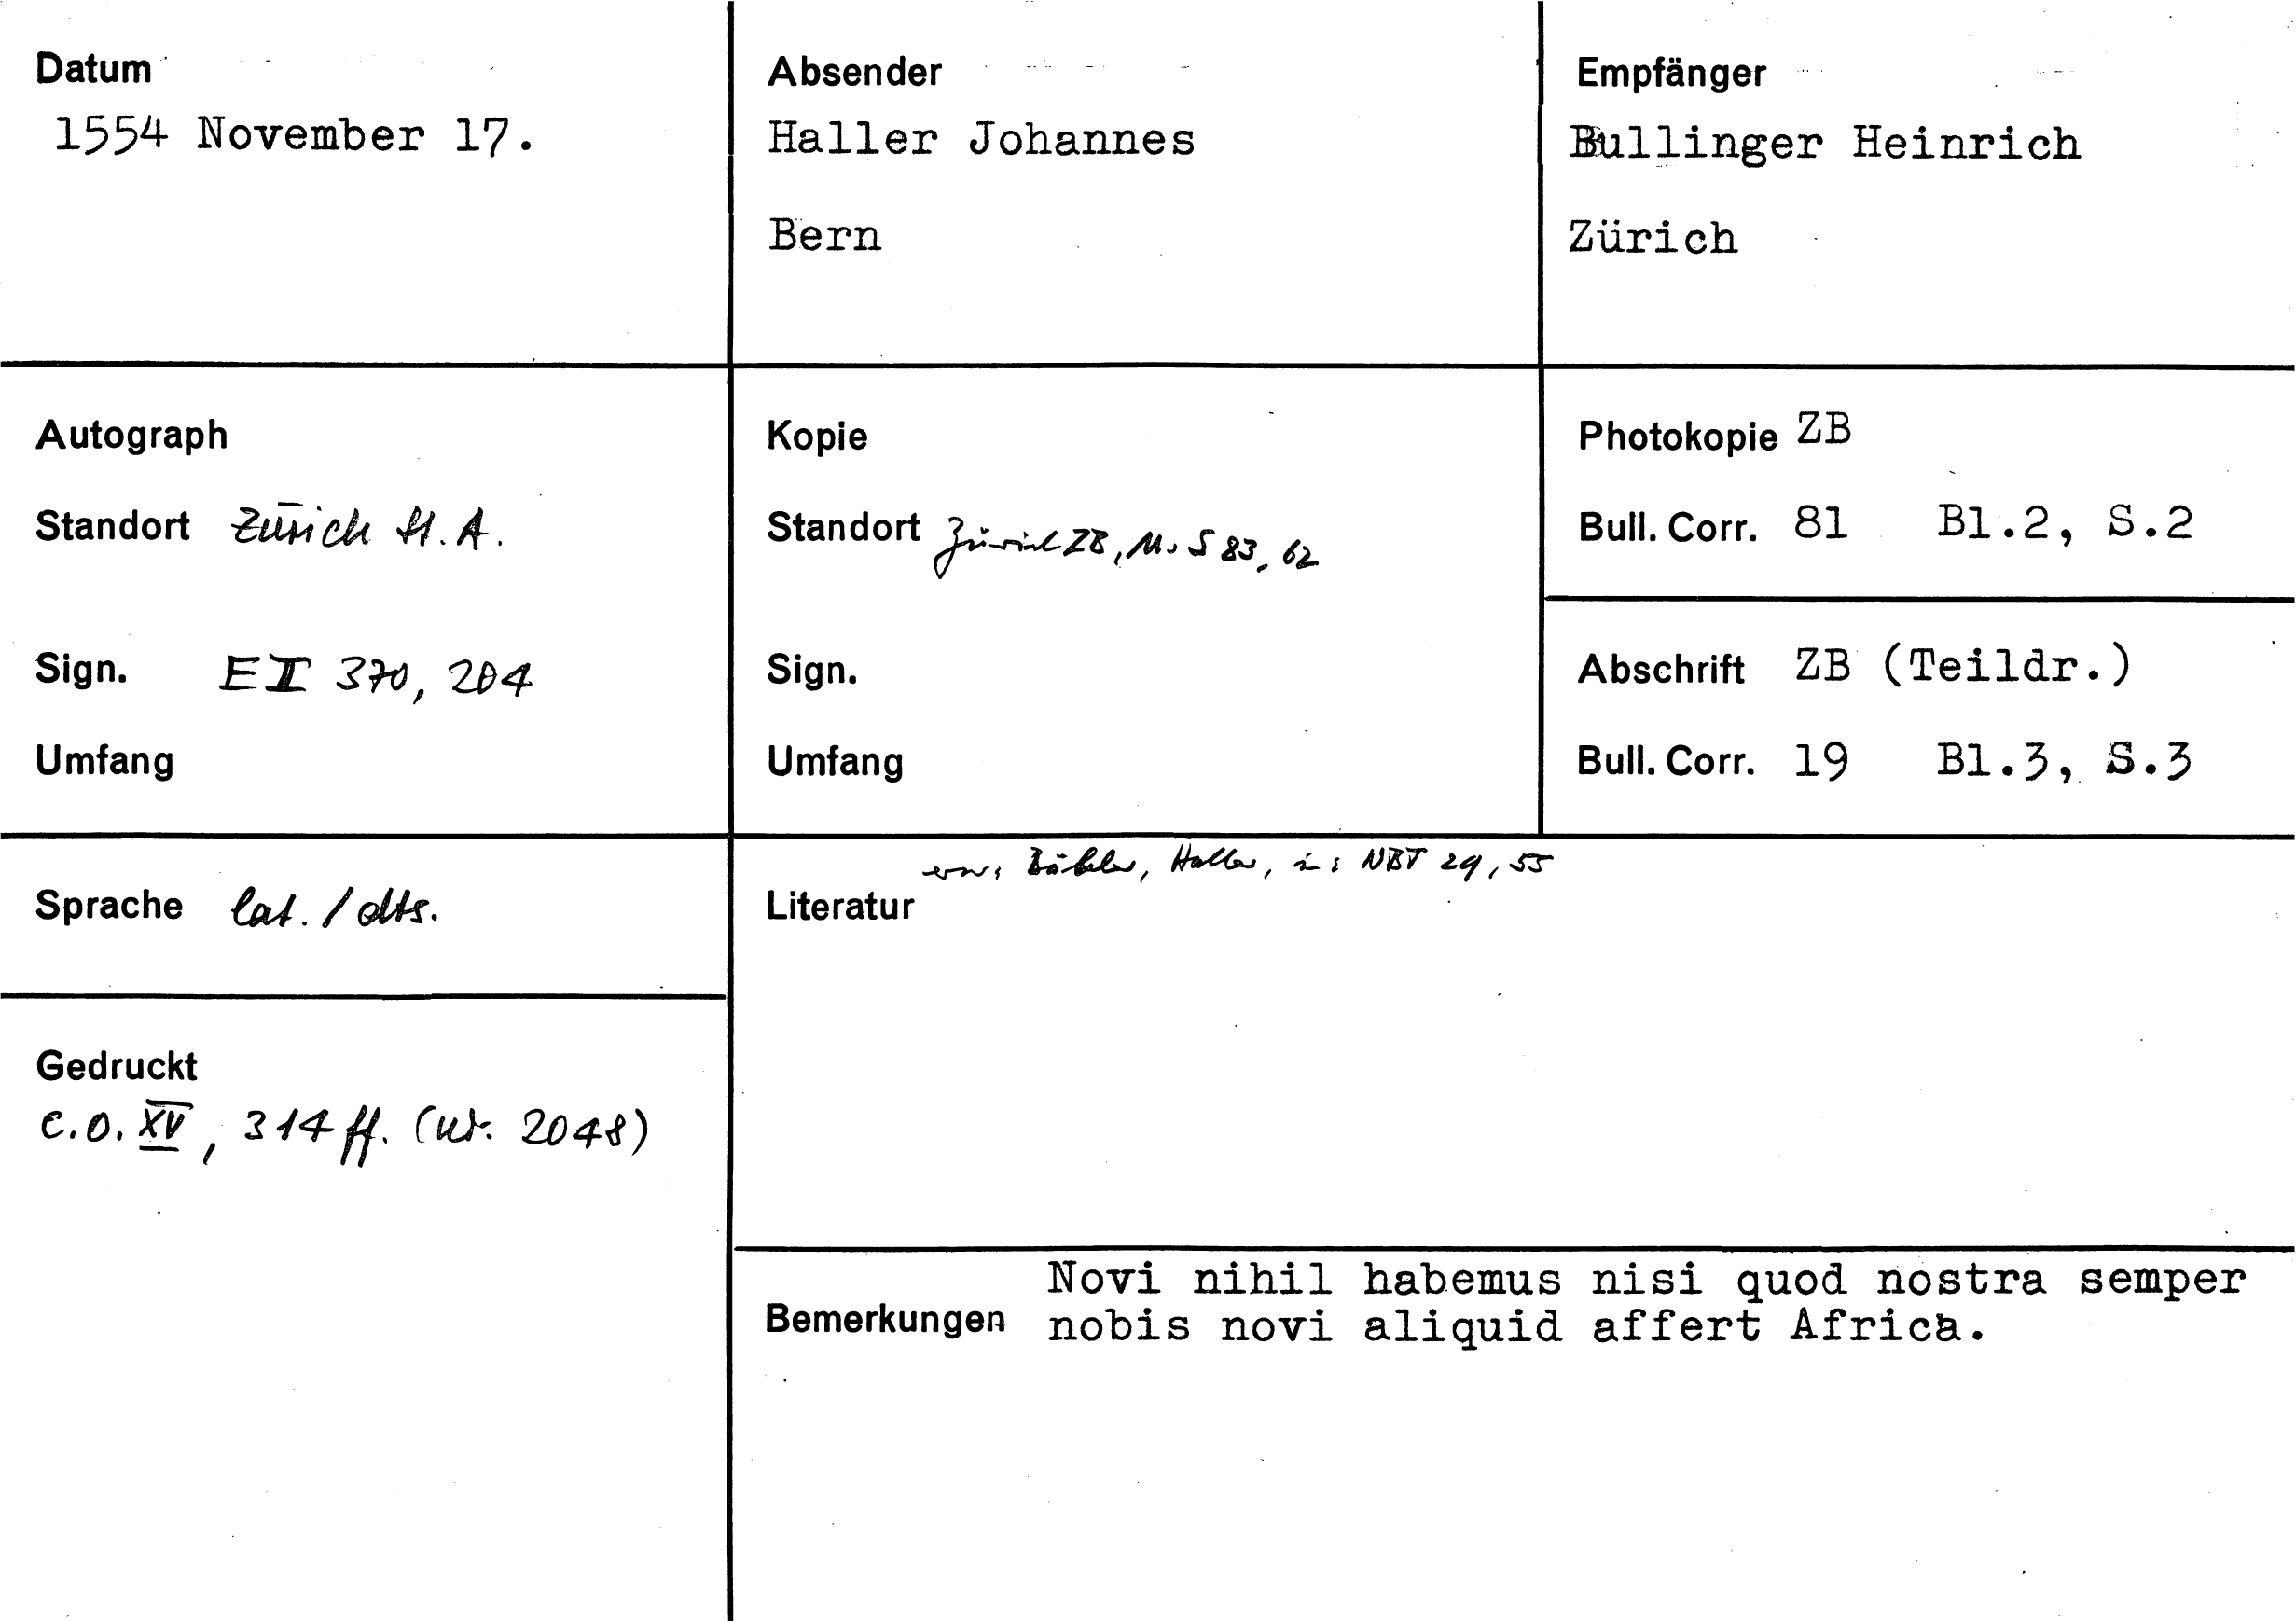 Datum
1554 November 17.
Absender
Haller Johannes
Bern
Empfänger
Bullinger Heinrich
Zürich
Autograph
Standort Zürich St. A.
Sign. E II 370, 204
Umfang
Kopie
Standort Zürich ZB, Ms S 83, 62
Sign.
Umfang
Photokopie ZB
Bull. Corr. 81 Bl.2, S.2
Abschrift ZB (Teildr.)
Bull. Corr. 19 Bl.3, S.3
Sprache lat. / dts.
Gedruckt
C.O. XV, 314 ff. (Nr. 2048)
Haller, in: NBT 29, 55
Literatur
Bemerkungen
Novi nihil habemus nisi quod nostra semper
nobis novi aliquid affert Africa.